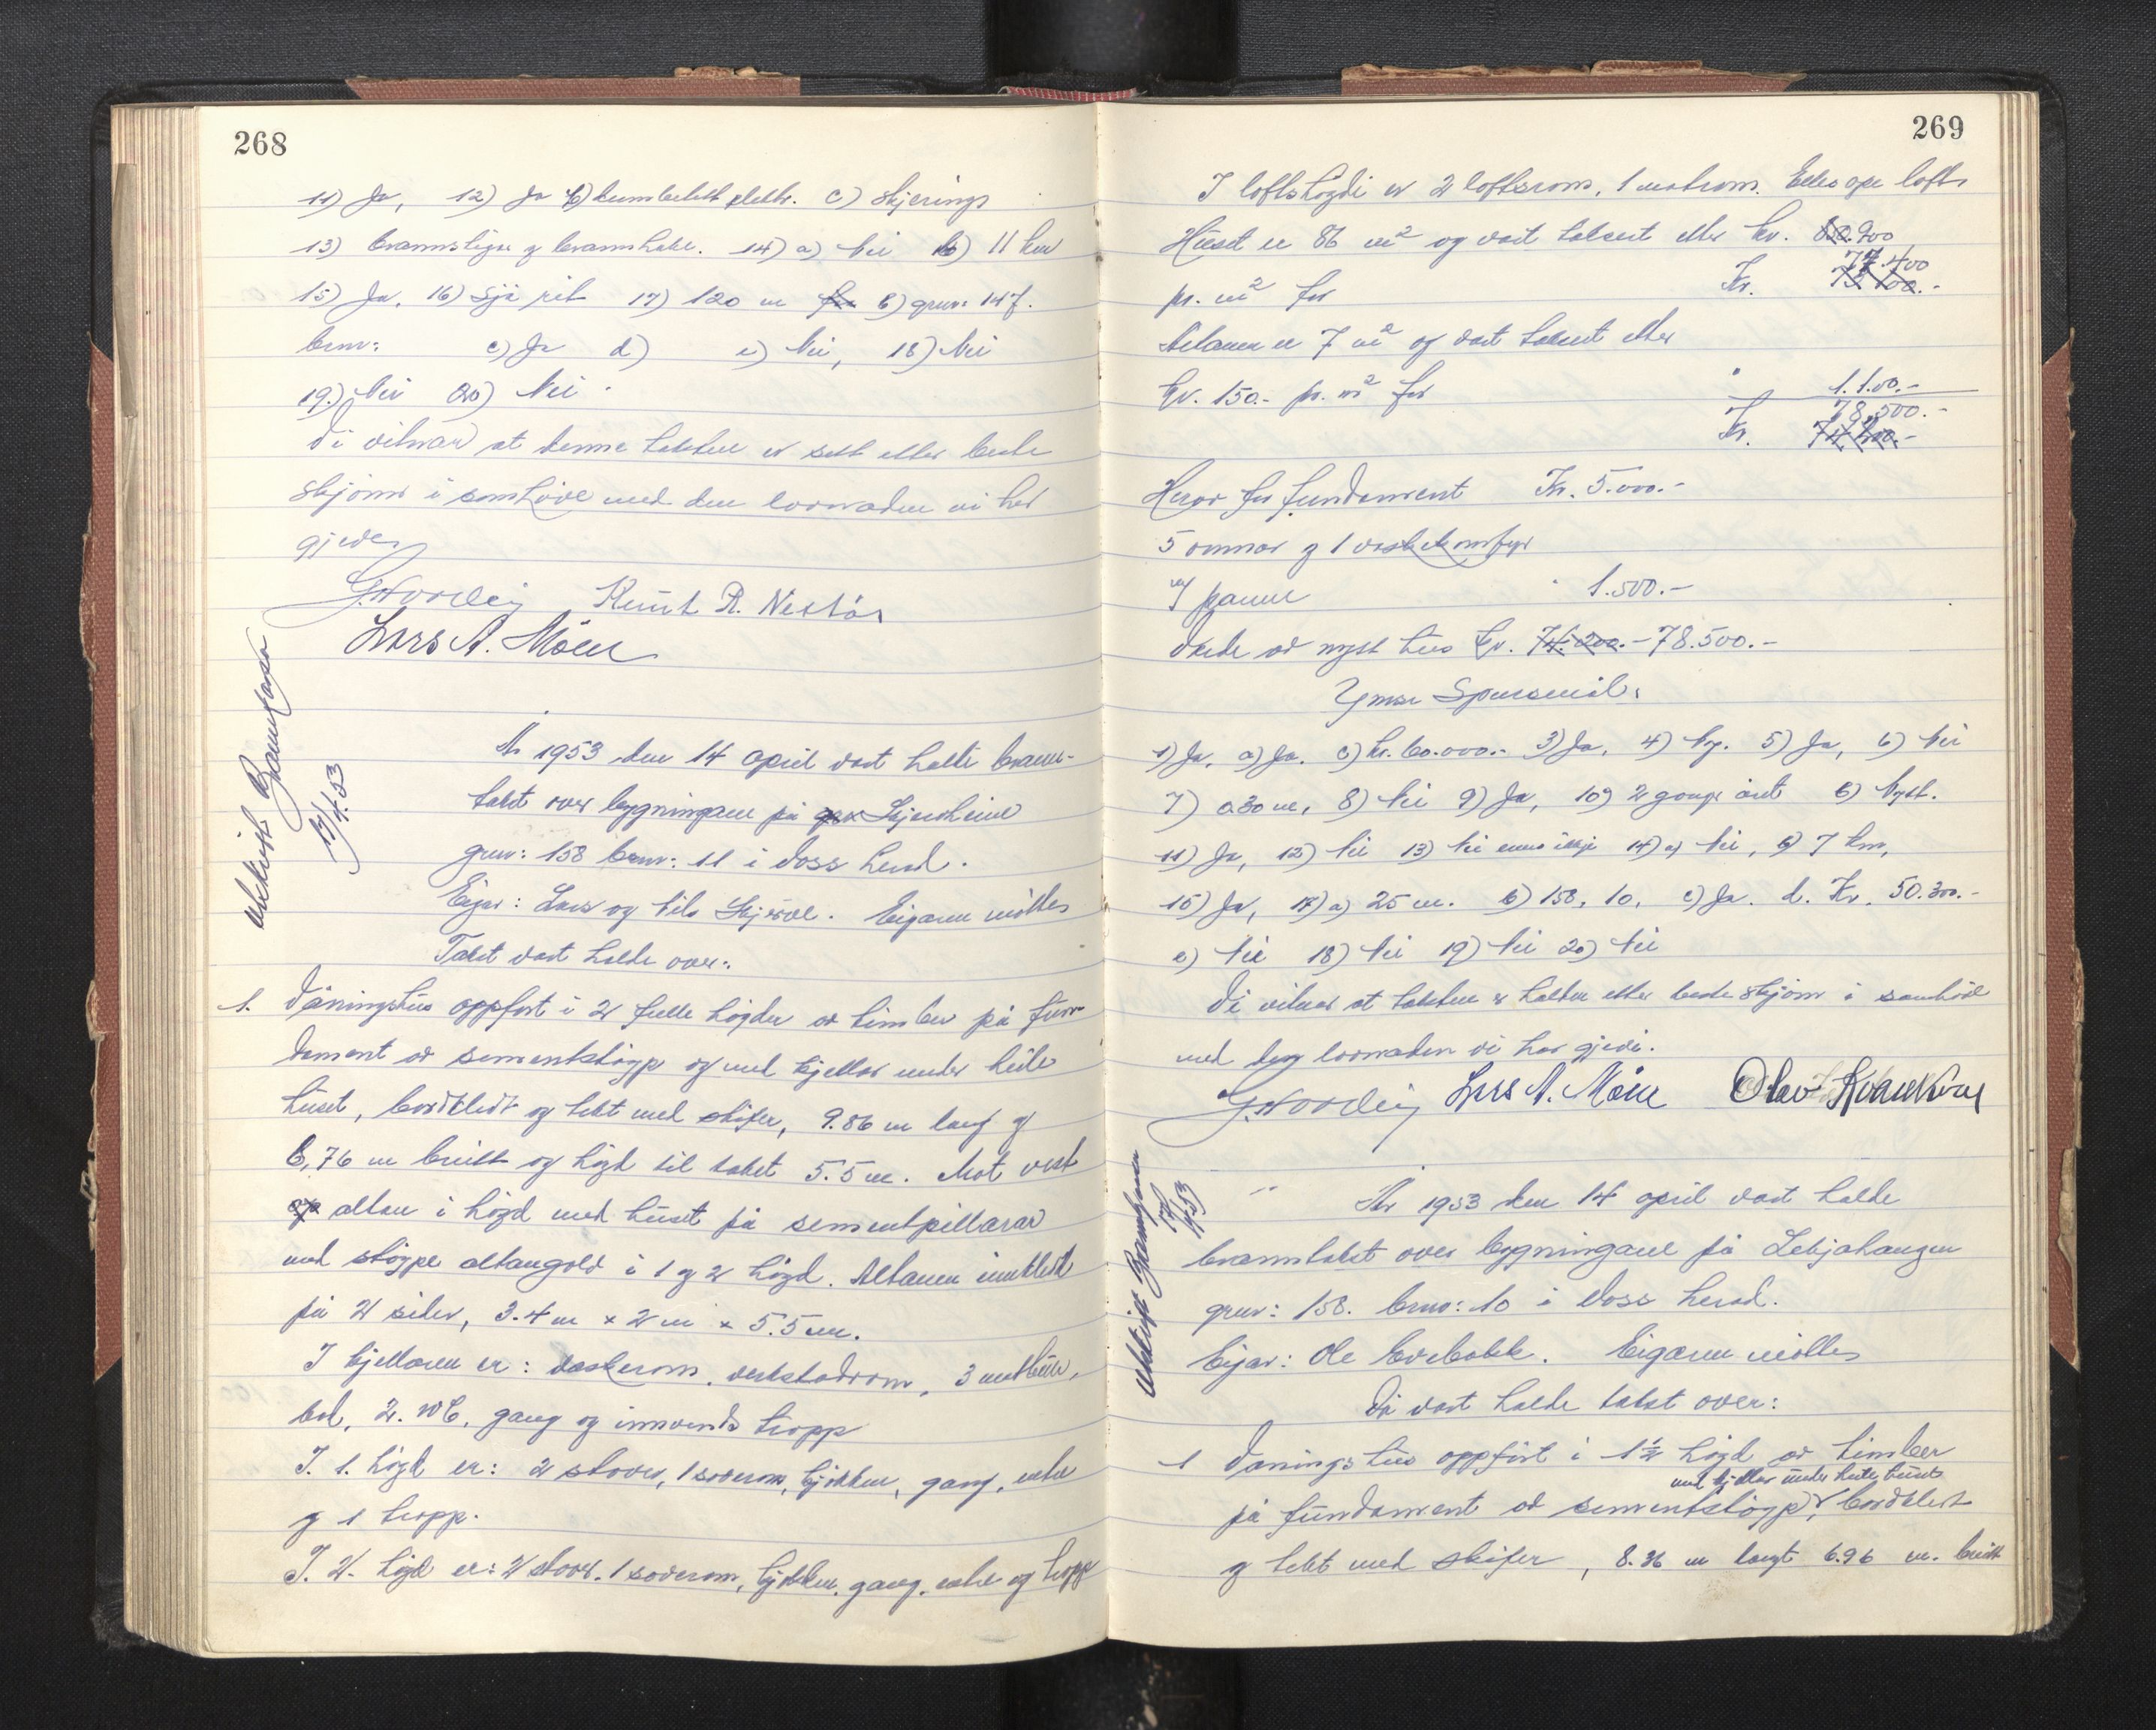 268
11) Ja, 12) Ja b) kumbelett elektr. c) skjerings
13) brannstige og brannhake. 14) a) Nei b) 11 km
15) Ja. 16) Sjå rit 17) 120 m b) gnr: 147.
bnr: c) Ja d) e) Nei, 18) Nei
19) Nei 20) Nei.
Vi vitnar at denne taksten er sett etter beste
skjønn i samhøve med den lovnaden vi har
gjeve.
Knut R. Nestås
Lars A. Møen
Utskrift Brannkassa
17/4.53
År 1953 den 14 april vart halde brann-
takst over bygningane på Skjerdheim
gnr: 158 bnr: 11 i Voss herad.
Eigar: Lars og Nils Skjerve. Eigaren møtte
Takst vart halde over:
1. Våningshus oppfort i 2 fulle høgder av timber på fun-
dament av sementstøyp og med kjellar under heile
huset, bordkledt og tekt med skifer, 9.86 m lang og
8,76 m breitt og høgd til taket 5.5 m. Mot vest
altan i høgd med huset på sementpillarar
med støype altangolv i 1 og 2 høgd. Altanen innkledt
på 2 sider, 3.4 m x 2 m x 5.5 m.
I kjellaren er: vaskerom, verkstadrom, 3 matbuer,
bod, 2. WC, gang og innvends tropp
I. 1. høgd er: 2 stover, 1 soverom, kjøkken, gang, entre
og 1 tropp.
I. 2. høgd er: 2 stover. 1 soverom, kjøkken, gang, entre og tropp
269
I loftshøgdi er 2 loftsrom, 1 matrom. Elles ope loft.
Huset er 86 m² og vart taksert etter kr. 900
77.400
pr. m² for Kr. 73.100.-
Altanen er 7 m² og vart taksert etter
kr. 150.- pr. m² for " 1.100.-
78.500.-
Kr. 74.200.-
Herav for fundament Kr. 5.000.-
5 omnar og 1 vaskekomfyr
m/ panne " 1.500.-
Verde av nytt hus kr. 74.200.- 78.500.-
Ymse Spursmål:
1) Ja, a) Ja. c) kr. 60.000.- 3) Ja, 4) Ny. 5) Ja, 6) Nei
7) 0.30 m, 8) Nei 9) Ja, 10) 2 gonger året b) Nytt.
11) Ja, 12) Nei 13) Nei enno ikkje 14) a) Nei, b) 7 km,
15) Ja, 17) a) 25 m. b) 158, 10, c) Ja. d. Kr. 50.300.-
e) Nei 18) Nei 19) Nei 20) Nei
Vi vitnar at taksten er halden etter beste skjønn i samhøve
med den lovnaden vi har gjeve.
Lars A. Møen Olav Kvarekvål
Utskrift Brannkassa
17/4.53
År 1953 den 14 april vart halde
branntakst over bygningane på Lekjahaugen
gnr: 158. bnr: 10 i Voss herad.
Eigar: Ole Brebakk. Eigaren møtte
Då vart halde takst over:
1 Våningshus oppført i 1½ høgd av timber
med kjellar under heile huset
på fundament av sementstøyp, bordkledt
og tekt med skifer, 8.36 m langt 6.96 m. breitt